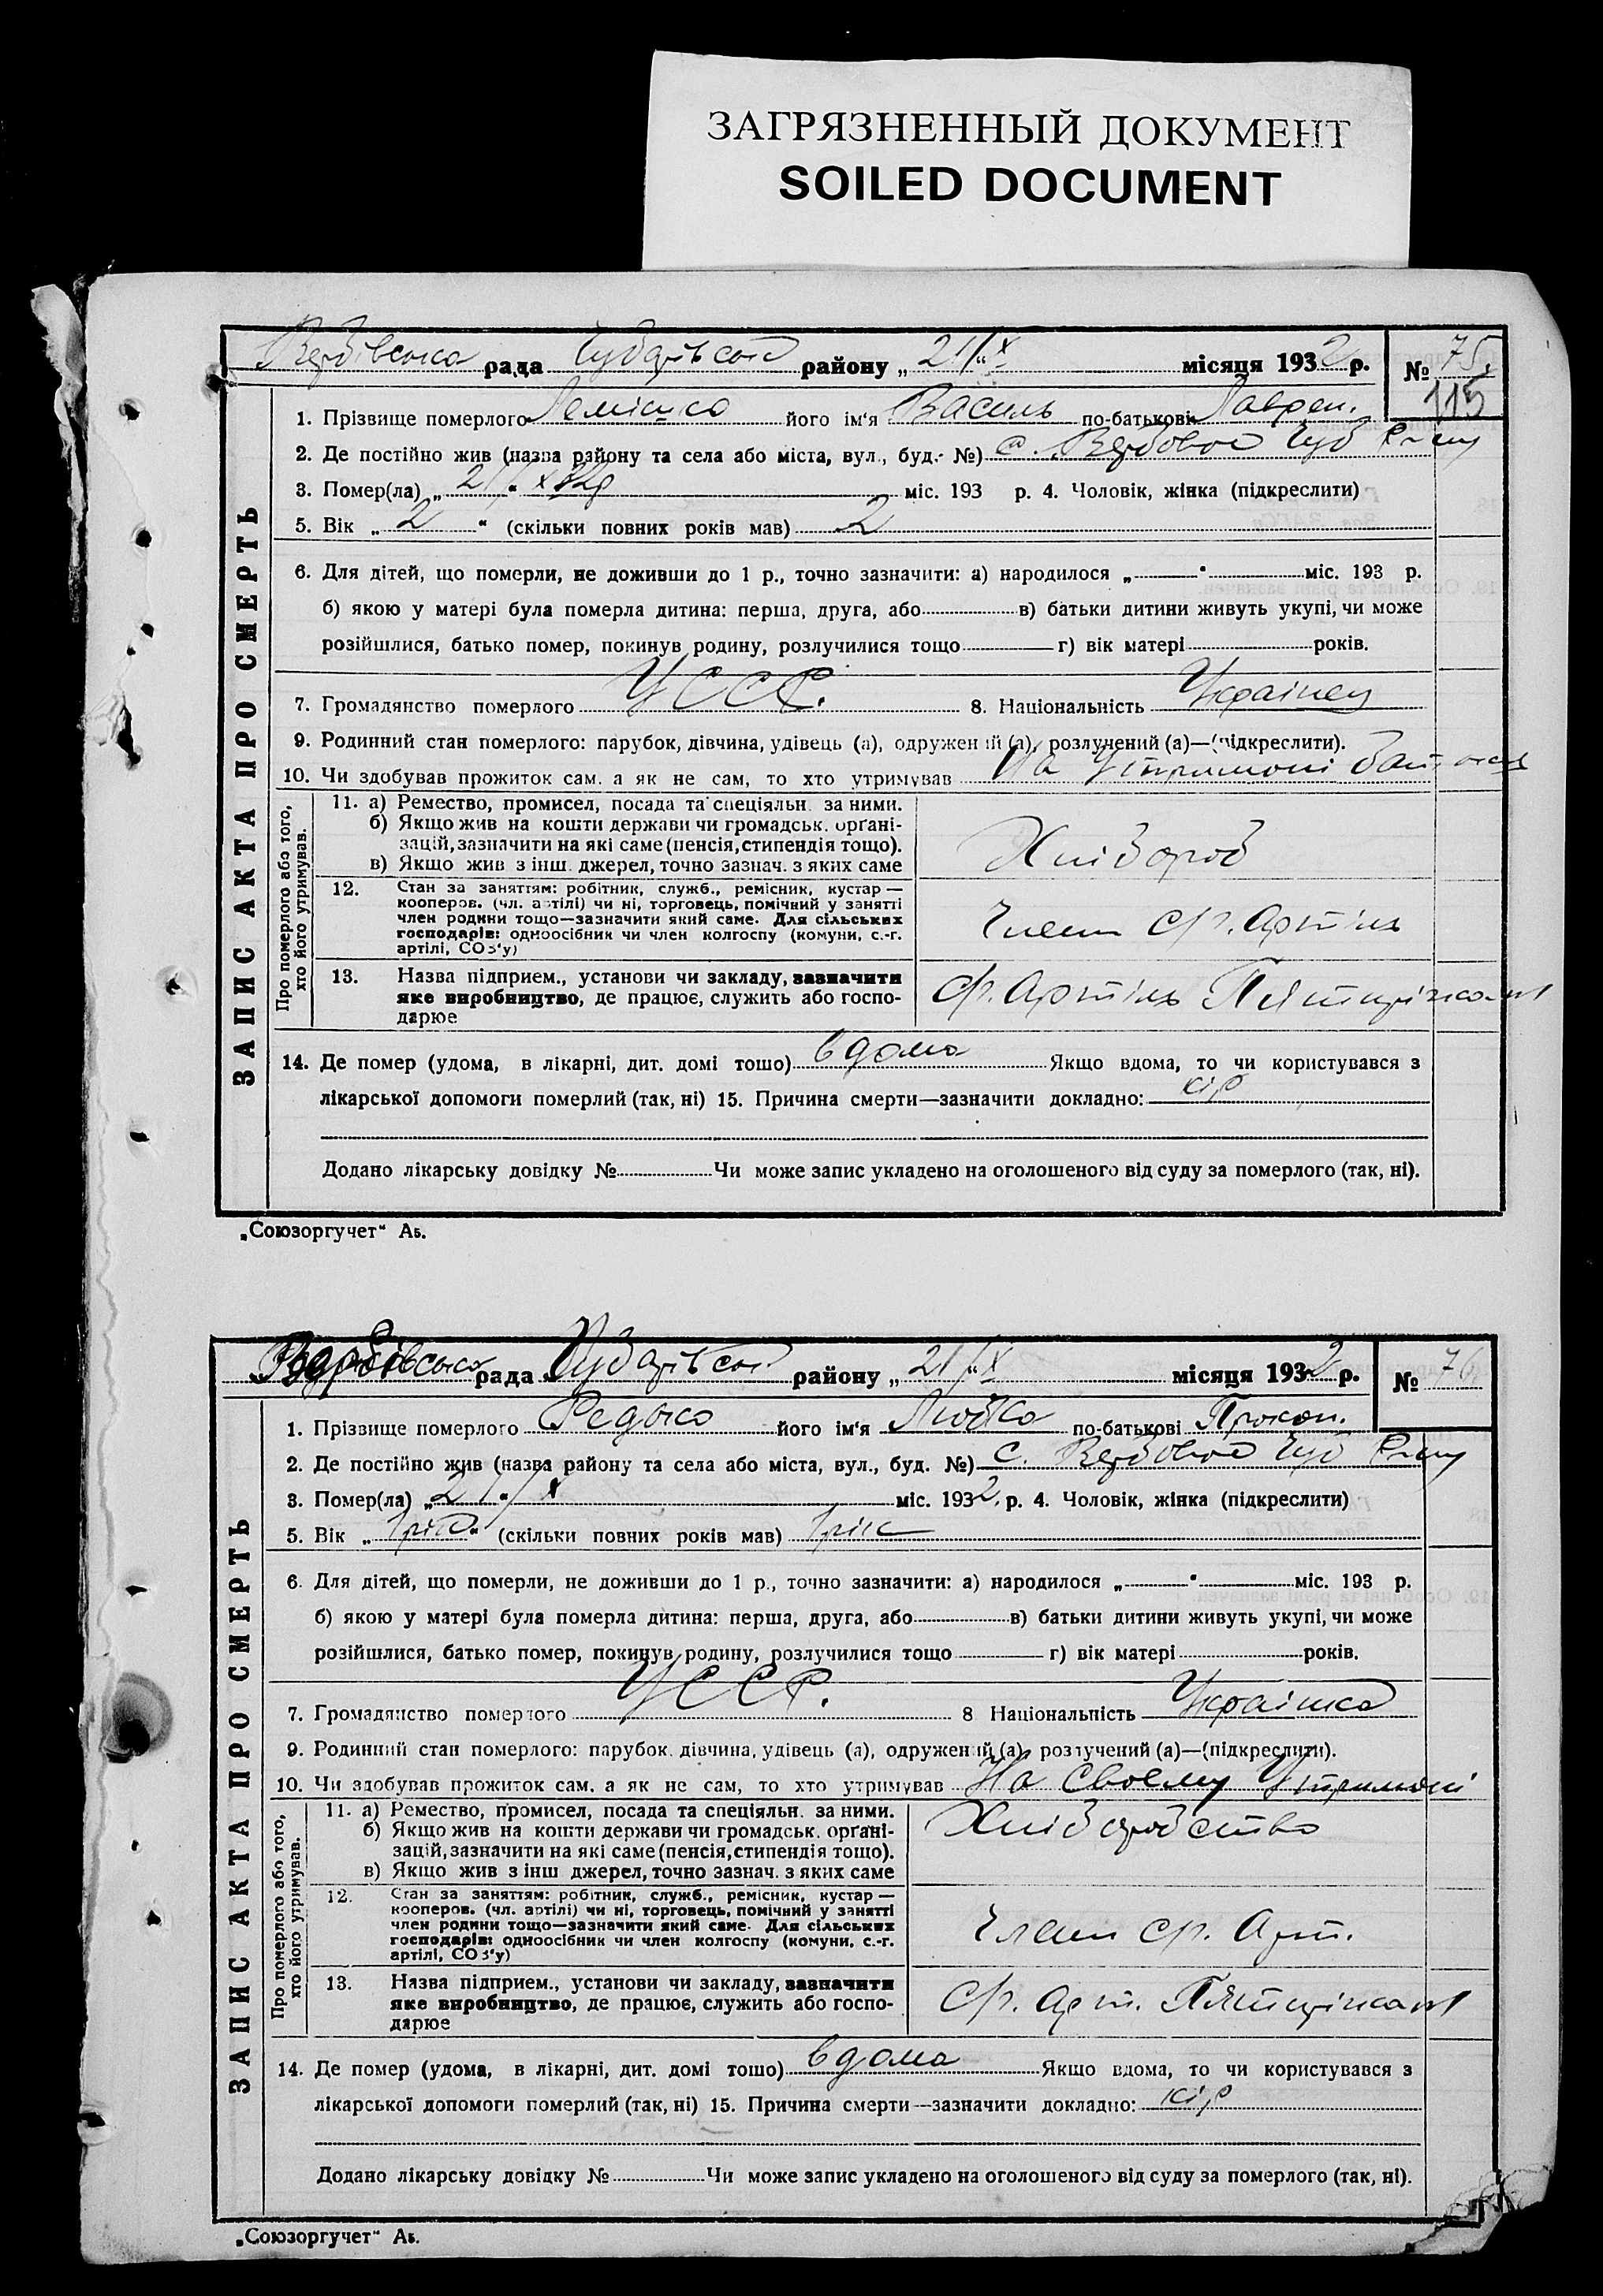 ЗАГРЯЗНЕННЫЙ ДОКУМЕНТ
SOILED DOCUMENT
Вербівська рада Чубарівськ району „ 21/X “ місяця 1932 р. № 75.
115
ЗАПИС АКТА ПРО СМЕРТЬ
1. Прізвище померлого його ім'я Василь по-батькові Лаврен.
2. Де постійно жив (назва району та села або міста, вул., буд. №) с. Вербове Чуб р-ну
3. Помер(ла) „ 21/X 32р міс. 193 р. 4. Чоловік, жінка (підкреслити)
5. Вік „ 2 “ (скільки повних років мав) 2
6. Для дітей, що померли, не доживши до 1 р., точно зазначити: а) народилося „ “ міс. 193 р.
б) якою у матері була померла дитина: перша, друга, або в) батьки дитини живуть укупі, чи може
розійшлися, батько помер, покинув родину, розлучилися тощо г) вік матері років.
7. Громадянство померлого УССР. 8. Національність Українец
9. Родинний стан померлого: парубок, дівчина, удівець (а), одружений (а), розлучений (а)—(підкреслити).
10. Чи здобував прожиток сам, а як не сам, то хто утримував На Утримані
Про померлого або того,
хто його утримував.
11. а) Ремество, промисел, посада та спеціяльн. за ними.
б) Якщо жив на кошти держави чи громадськ. орґані-
зацій, зазначити на які саме (пенсія, стипендія тощо).
в) Якщо жив з інш. джерел, точно зазнач. з яких саме
Хлібороб
12. Стан за заняттям: робітник, служб., ремісник, кустар —
кооперов. (чл. артілі) чи ні, торговець, помічний у занятті
член родини тощо—зазначити який саме. Для сільських
господарів: одноосібник чи член колгоспу (комуни, с.-г.
артілі, СОЗ'у)
Член с/г. Артіль
13. Назва підприєм., установи чи закладу, зазначити
яке виробництво, де працює, служить або госпо-
дарює
с/г. Артіль
14. Де помер (удома, в лікарні, дит. домі тощо) вдома Якщо вдома, то чи користувався з
лікарської допомоги померлий (так, ні) 15. Причина смерти—зазначити докладно: кір
Додано лікарську довідку № Чи може запис укладено на оголошеного від суду за померлого (так, ні).
„Союзоргучет“ Аб.
Вербівська рада Чубарівськ району „ 21/X “ місяця 1932 р. № 76.
ЗАПИС АКТА ПРО СМЕРТЬ
1. Прізвище померлого Редько його ім'я Любка по-батькові Прокоп.
2. Де постійно жив (назва району та села або міста, вул., буд. №) с. Вербове Чуб р-ну
3. Помер(ла) „ 21/X міс. 1932. р. 4. Чоловік, жінка (підкреслити)
5. Вік „ 1 рік “ (скільки повних років мав) 1 рік
6. Для дітей, що померли, не доживши до 1 р., точно зазначити: а) народилося „ “ міс. 193 р.
б) якою у матері була померла дитина: перша, друга, або в) батьки дитини живуть укупі, чи може
розійшлися, батько помер, покинув родину, розлучилися тощо г) вік матері років.
7. Громадянство померлого УССР. 8 Національність Українка
9. Родинний стан померлого: парубок. дівчина, удівець (а), одружений (а), розлучений (а)—(підкреслити).
10. Чи здобував прожиток сам, а як не сам, то хто утримував На своєму Утримані
Про померлого або того,
хто його утримував.
11. а) Ремество, промисел, посада та спеціяльн. за ними.
б) Якщо жив на кошти держави чи громадськ. орґані-
зацій, зазначити на які саме (пенсія, стипендія тощо).
в) Якщо жив з інш джерел, точно зазнач. з яких саме
Хліборобство
12. Стан за заняттям: робітник, служб., ремісник, кустар —
кооперов. (чл. артілі) чи ні, торговець, помічний у занятті
член родини тощо—зазначити який саме. Для сільських
господарів: одноосібник чи член колгоспу (комуни, с.-г.
артілі, СОЗ'у)
Член с/г. Арт.
13. Назва підприєм., установи чи закладу, зазначити
яке виробництво, де працює, служить або госпо-
дарює
с/г. арт.
14. Де помер (удома, в лікарні, дит. домі тощо) вдома Якщо вдома, то чи користувався з
лікарської допомоги померлий (так, ні) 15. Причина смерти—зазначити докладно: кір
Додано лікарську довідку № Чи може запис укладено на оголошеного від суду за померлого (так, ні).
„Союзоргучет“ Аб.